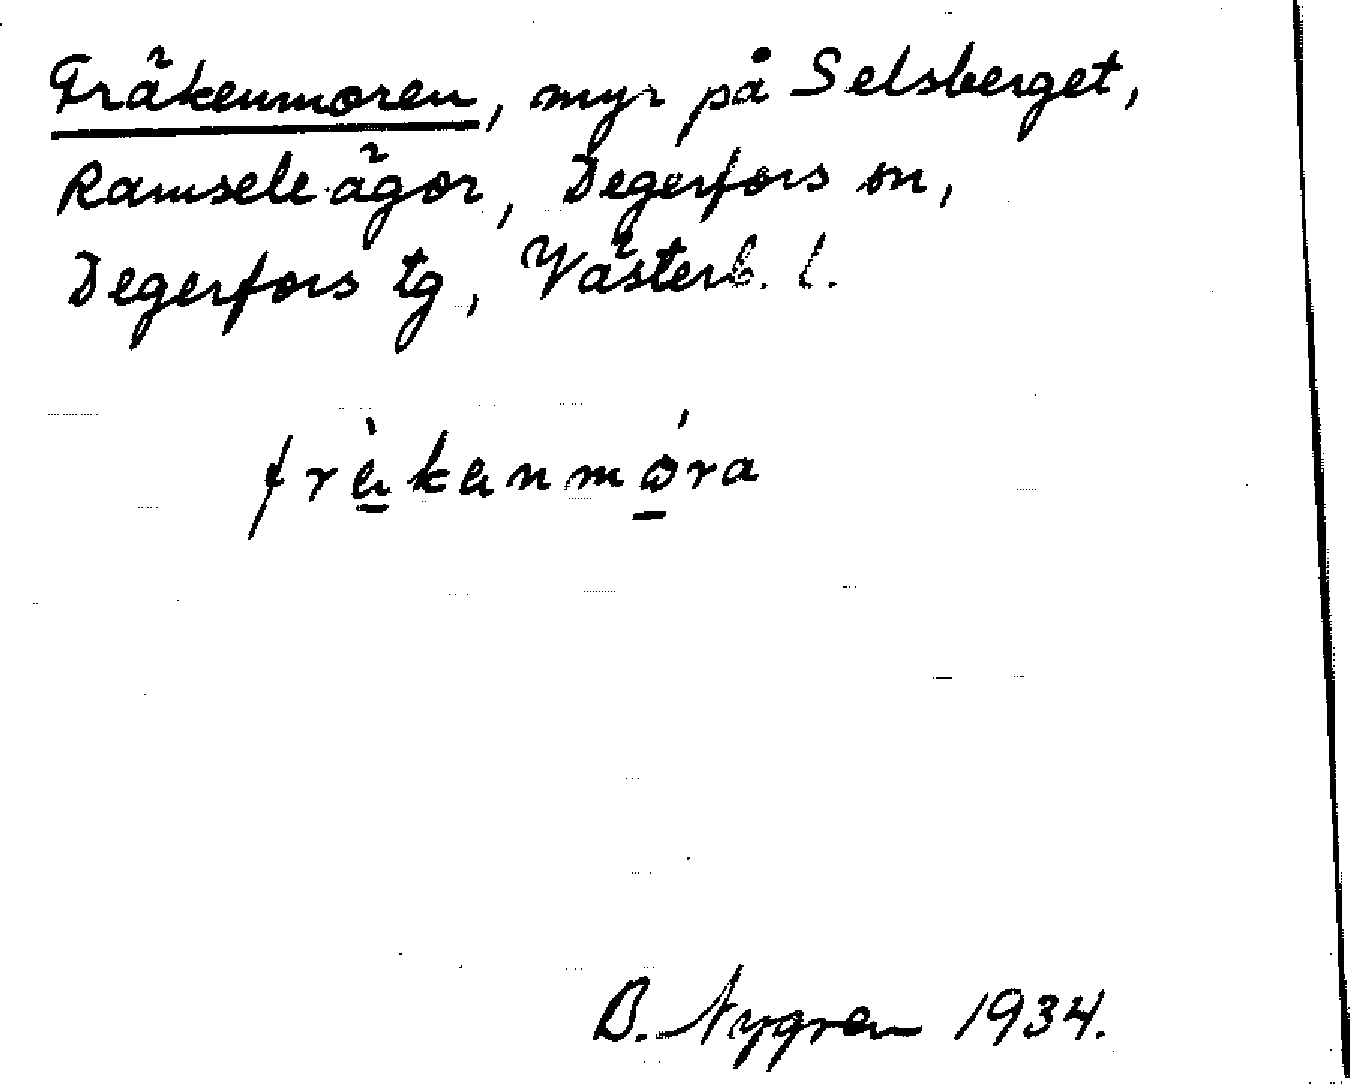 Fräkenmoren, myr på Selsberget,
Ramsele ägor, Degerfors sn,
Degerfors tg, Västerb. l.
frὲkænmóra
B. Nygren 1934.